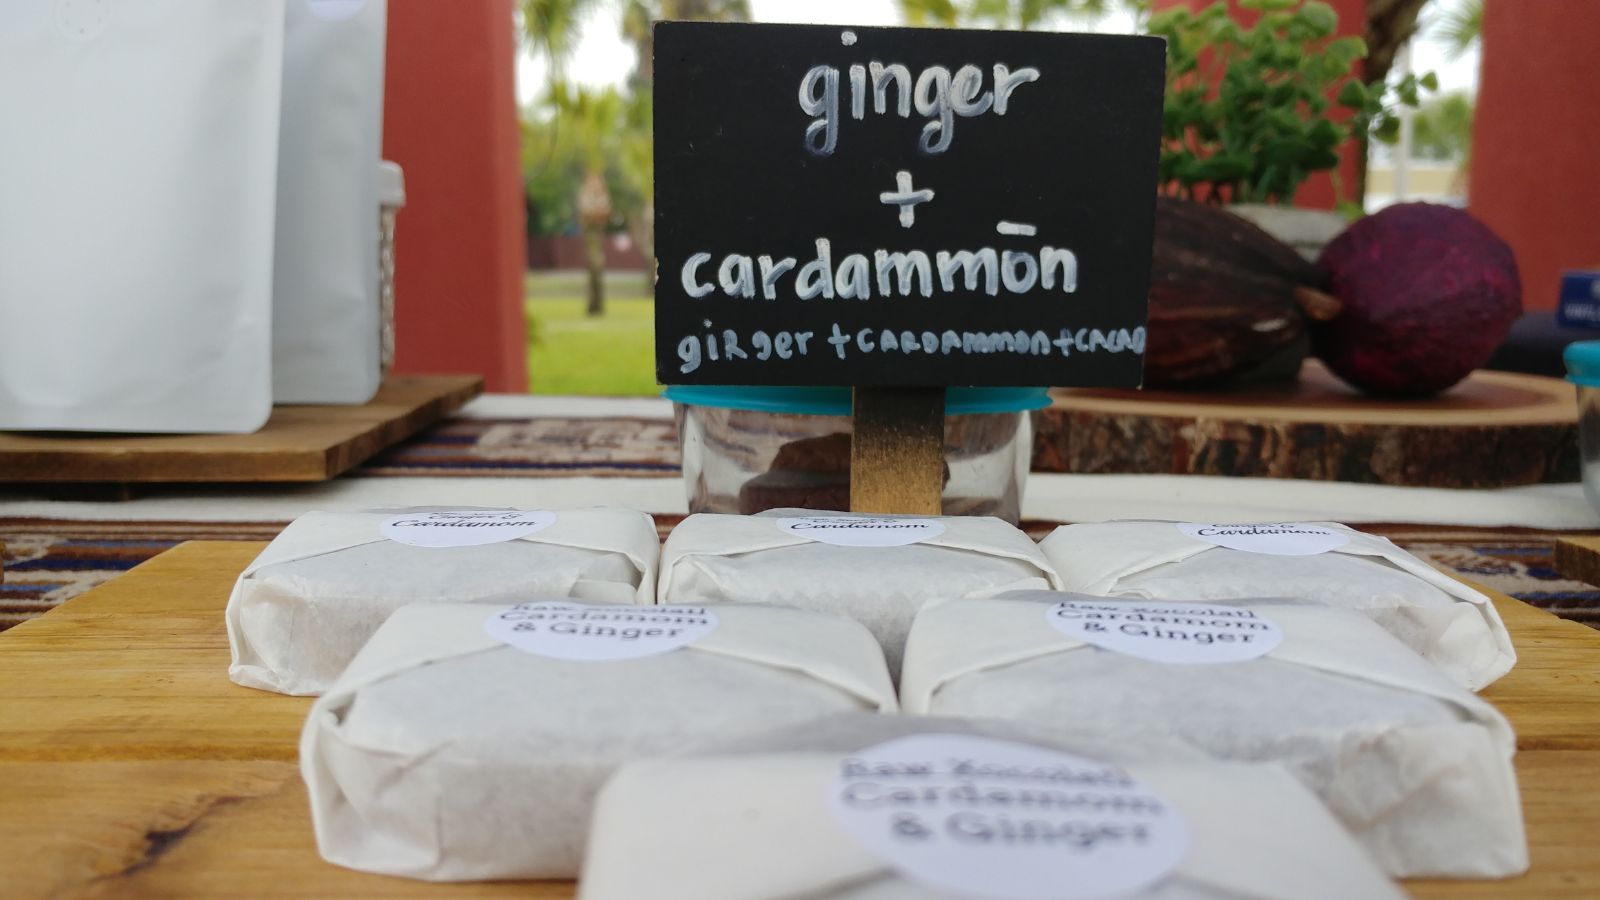 ginger
+
cardammōn
ginger + CARDAmmon + CACAO
Ginger &
Cardamom
Cardamom
Ginger &
Cardamom
Raw Xocolatl
Cardamom
& Ginger
Raw Xocolatl
Cardamom
& Ginger
Raw Xocolatl
Cardamom
& Ginger